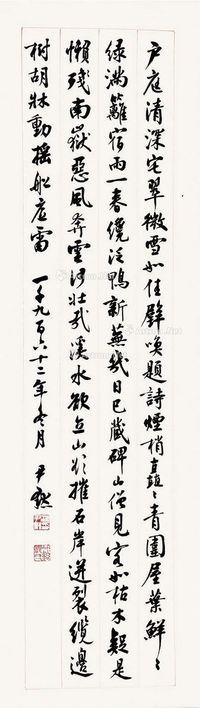 戶庭清深宅翠微雪如佳壁喚題詩煙梢矗〻青圍屋葉鮮〻
綠滿籬宿雨一春纔泛鴨新蕪幾日已藏碑山僧見客如枯木疑是
懶殘南嶽惡風奔雲何壯哉溪水欲立山欲摧石岸迸裂纜邊
樹胡牀動搖船底雷 一千九百六十二年冬月 尹默